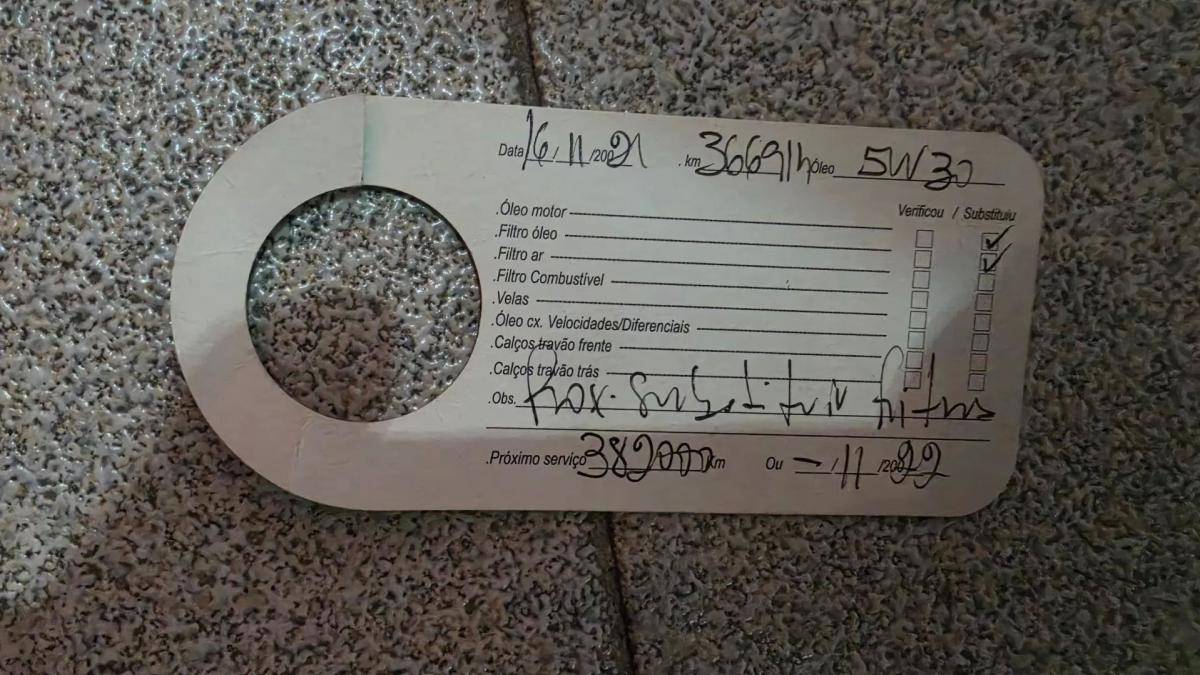 Data 16/11/2021 .km 366914 Óleo 5W30
Verificou / Substituiu
.Óleo motor
.Filtro óleo
.Filtro ar
.Filtro Combustível
.Velas
.Óleo cx. Velocidades/Diferenciais
.Calços travão frente
.Calços travão trás
.Obs. Prox. Substituir filtros
.Próximo serviço 382000 km Ou - /11 /2022